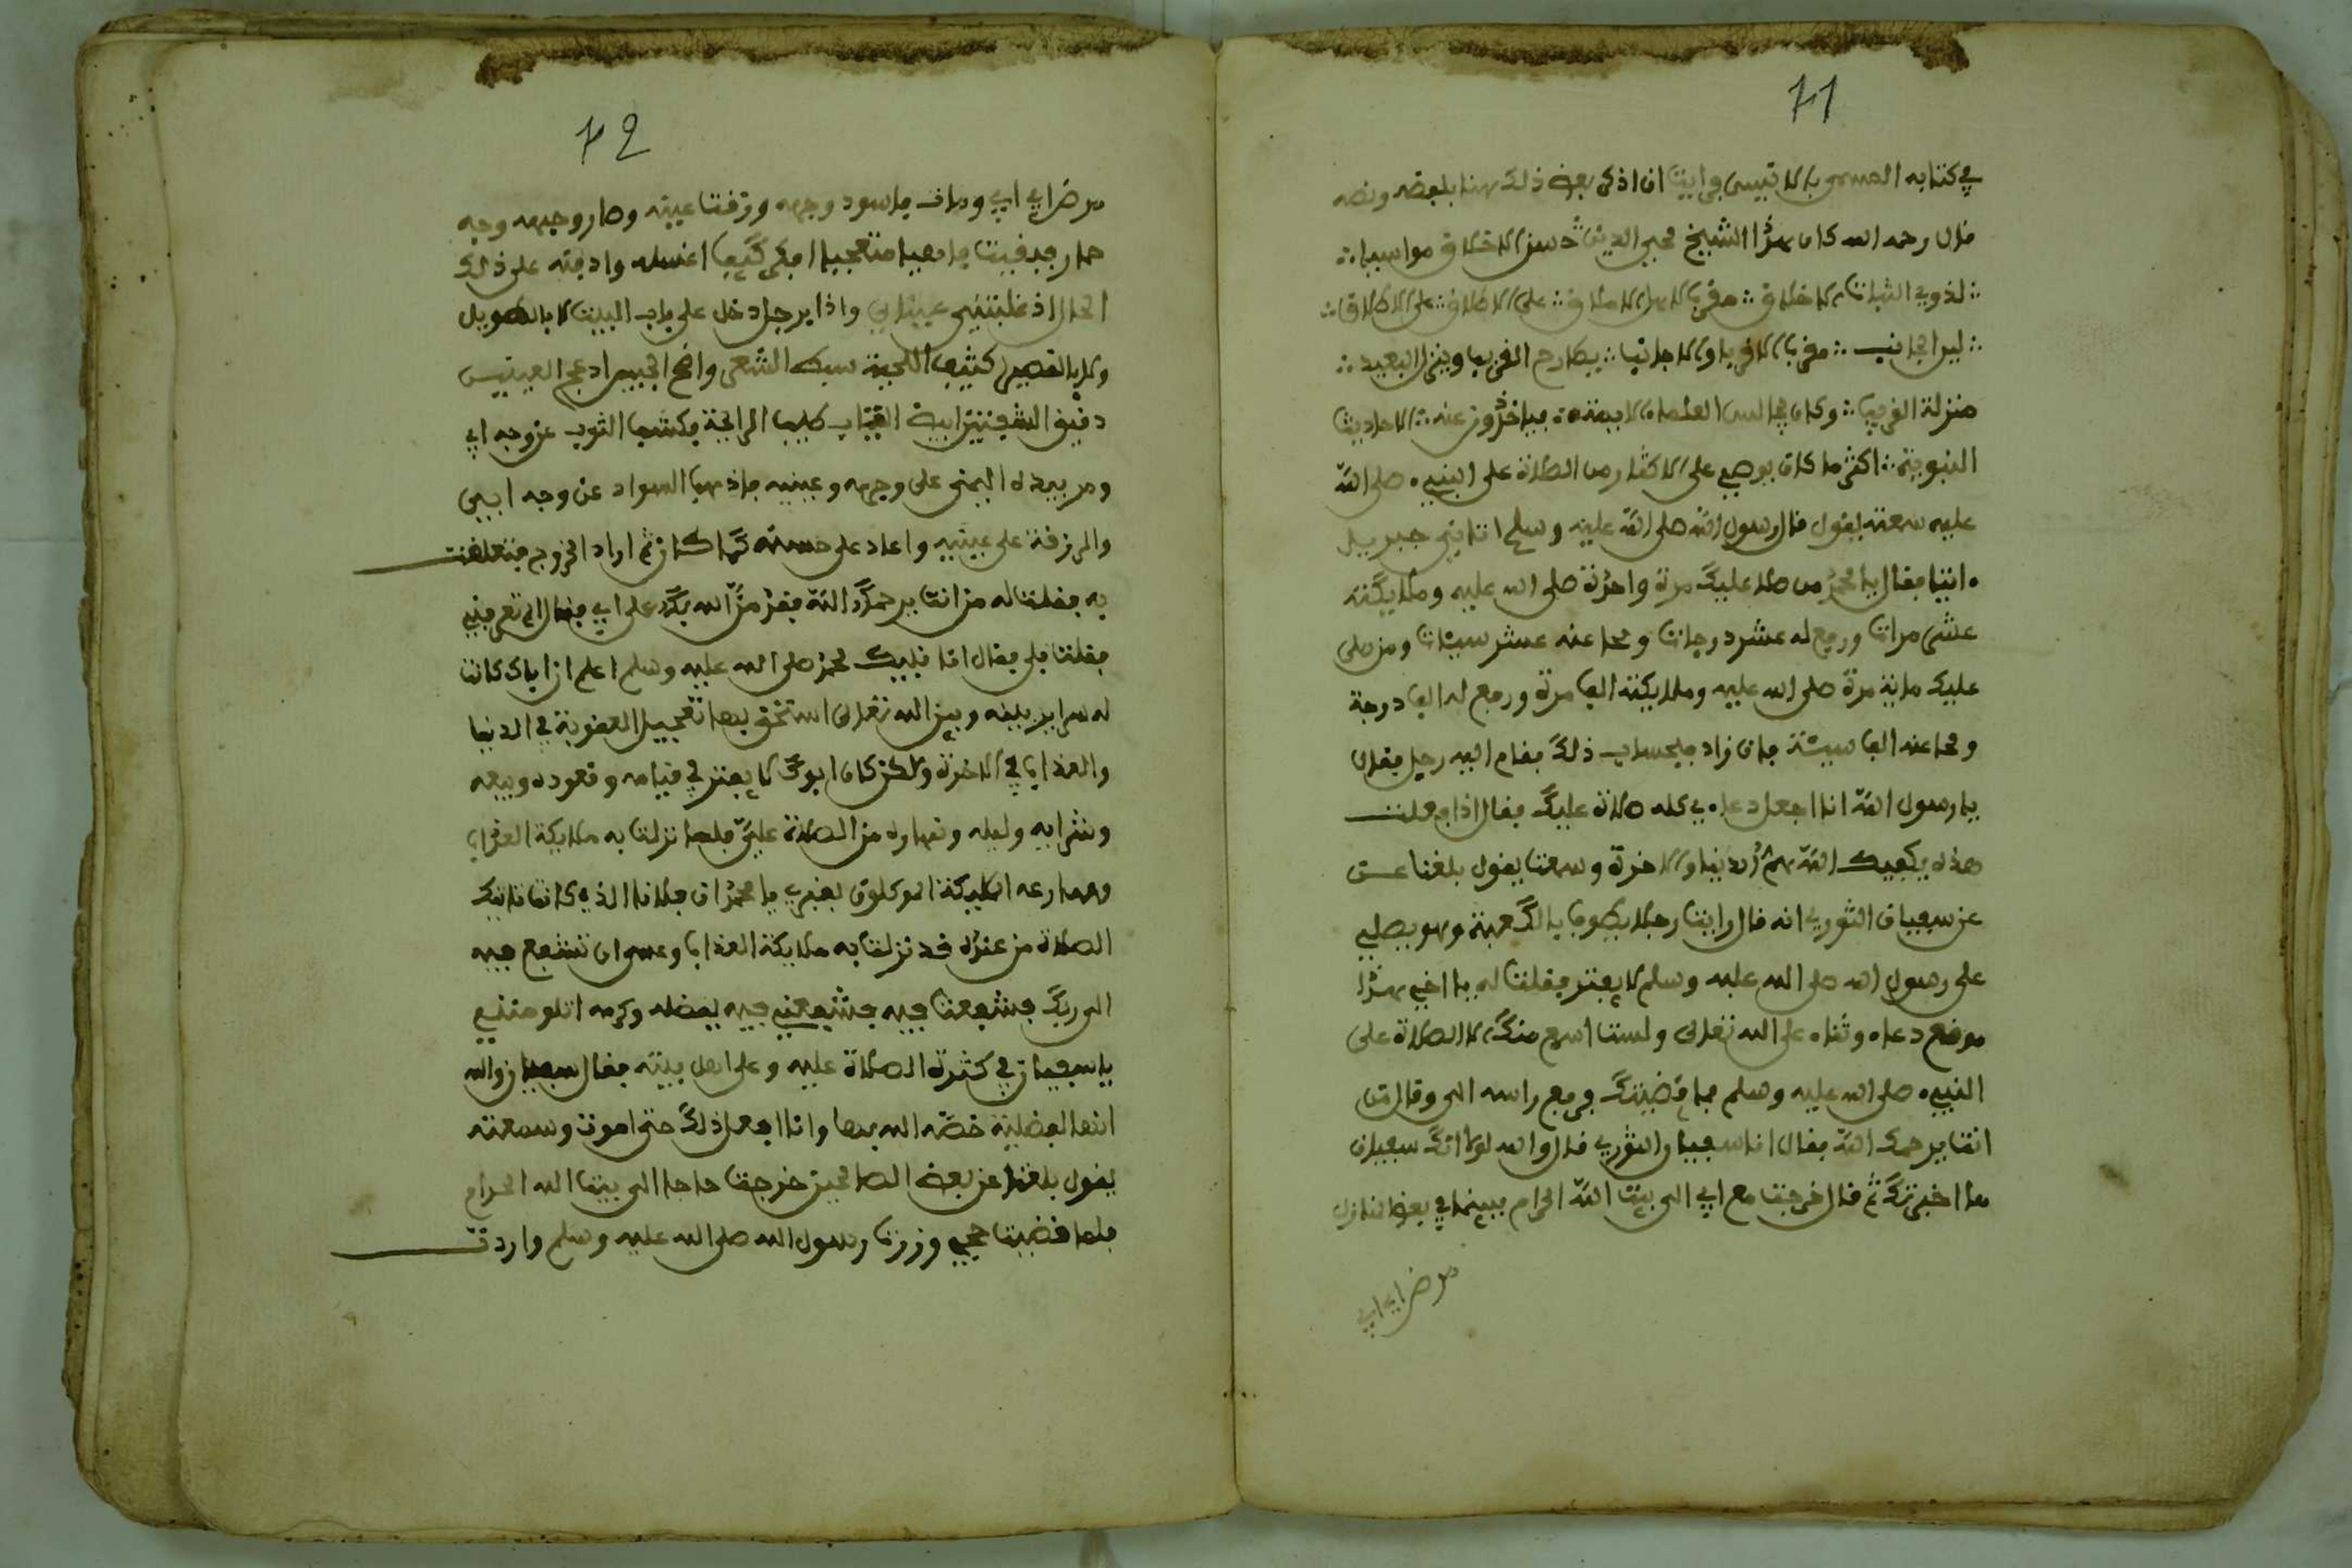 71
في كتابه المسمى بالانيس فرايت ان اذكر بعض ذلك هنا بلفظه ونصه
قال رحمه الله كان هذا الشيخ محيي الدين حسن الاخلاق مواسيا
لذوي الاخلاق على الاطلاق
لين الجانب مقرب الاقربا والاجانب يكارم القريب وينزل البعيد
منزلة القريب وكان يجالس العلماء الايمة فياخذون عنه الاحاديث
النبوية اكثر ما كان يوصي على الاكثار من الصلاة على النبي صلى الله
عليه سمعته يقول قال رسول الله صلى الله عليه وسلم اتاني جبريل
انبا فقال يا محمد من صلا عليك مرة واحدة صلى الله عليه وملايكته
عشر مرات ورفع له عشر درجات ومحا عنه عشر سيئات ومن صلى
عليك ماية مرة صلى الله عليه وملايكته الف مرة ورفع له الف درجة
ومحا عنه الف سيئة فان زاد فبحساب ذلك فقام اليه رجل فقال
يا رسول الله انا اجعل دعاءي كله صلاة عليك فقال اذا فعلت
هذه يكفيك الله هم الدنيا والاخرة وسمعته يقول بلغنا
عن سفيان الثوري انه قال رايت رجلا يطوف بالكعبة وهو يصلي
على رسول الله صلى الله عليه وسلم لا يفتر فقلت له يا اخي هذا
موضع دعاء وثناء على الله تعالى ولست اسمع منك الا الصلاة على
النبي صلى الله عليه وسلم فما قضيتك فرفع راسه الي وقال من
انت يرحمك الله فقال انا سفيان الثوري قال والله لولا انك سفيان
ما اخبرتك ثم قال خرجت مع ابي الى بيت الله الحرام فبينما في بعض المنازل
مرض ابي
72
مرض ابي ومات فاسود وجهه وزرقت عينه وصار وجهه وجه
حمار فبقيت متعجبا افكر كيف اغسله وادفنه على ذلك
الحال اذ غلبتني عيناي واذا برجل دخل على باب البيت لا بالطويل
ولا بالقصير كثيف اللحية سبط الشعر واضح الجبين ادعج العينين
دقيق الشفتين ابيض الثياب طيب الرايحة فكشف الثوب عن وجه ابي
ومر بيده اليمنى على وجهه وعينيه فاذهب السواد عن وجه ابي
والزرقة على عينيه واعاد على حسنه كما كان ثم اراد الخروج فتعلقت
به فقلت له من انت يرحمك الله فقد من الله بك على ابي فقال الم تعرفني
فقلت بلى فقال انا نبيك محمد صلى الله عليه وسلم اعلم ان اباك كانت
له سراير بينه وبين الله تعالى استحق بها تعجيل العقوبة في الدنيا
والعذاب في الاخرة ولكن كان ابوك لا يفتر في قيامه وقعوده وبيعه
وشرابه وليله ونهاره من الصلاة علي فلما نزلت به ملايكة العذاب
الملايكة الموكلون بقبري يا محمد ان فلانا الذي كانت تاتيك
الصلاة من عنده قد نزلت به ملايكة العذاب وعسى ان تشفع فيه
الى ربك فشفعت فيه فشفعني فيه بفضله وكرمه
يا سفيان في كثرة الصلاة عليه وعلى اهل بيته فقال سفيان والله
انها لفضيلة خصه الله بها وانا افعل ذلك حتى اموت وسمعته
يقول بلغنا عن بعض الصالحين خرجت حاجا الى بيت الله الحرام
فلما قضيت حجي وزرت رسول الله صلى الله عليه وسلم واردت